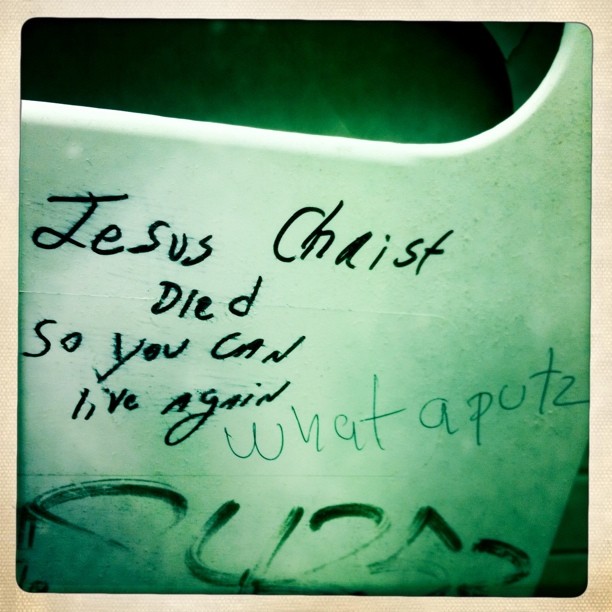 Jesus Christ
Died
So you CAN
live again
what a putz